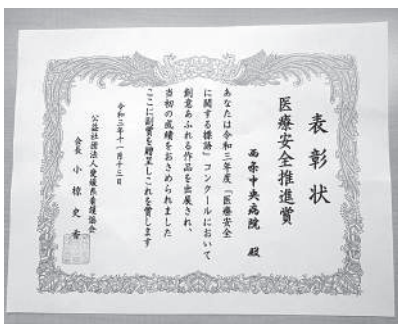 表彰状
医療安全推進賞
西条中央病院 殿
あなたは令和三年度「医療安全
に関する標語」コンクールにおいて
創意あふれる作品を出展され、
当初の成績をおさめられました
ここに副賞を贈呈しこれを賞します
令和三年十一月十三日
公益社団法人愛媛県看護協会
会長 小椋史香